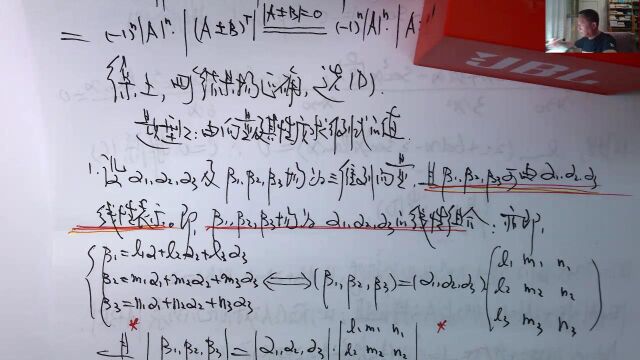 = (-1)ⁿ|A|ⁿ·|(A±B)ᵀ| |A±B|=0 (-1)ⁿ|A|ⁿ·|A
综上,四个结果均正确,选(D).
JBL
1.设α₁,α₂,α₃及β₁,β₂,β₃均为三维列向量,且β₁,β₂,β₃可由α₁,α₂,α₃
线性表示。即,β₁,β₂,β₃均为α₁,α₂,α₃的线性组合.亦即,
β₁=l₁α₁+l₂α₂+l₃α₃
β₂=m₁α₁+m₂α₂+m₃α₃ ⟺ (β₁,β₂,β₃)=(α₁,α₂,α₃)
β₃=n₁α₁+n₂α₂+n₃α₃
l₁ m₁ n₁
l₂ m₂ n₂
l₃ m₃ n₃
|β₁,β₂,β₃|=|α₁,α₂,α₃|·
l₁ m₁ n₁
l₂ m₂ n₂